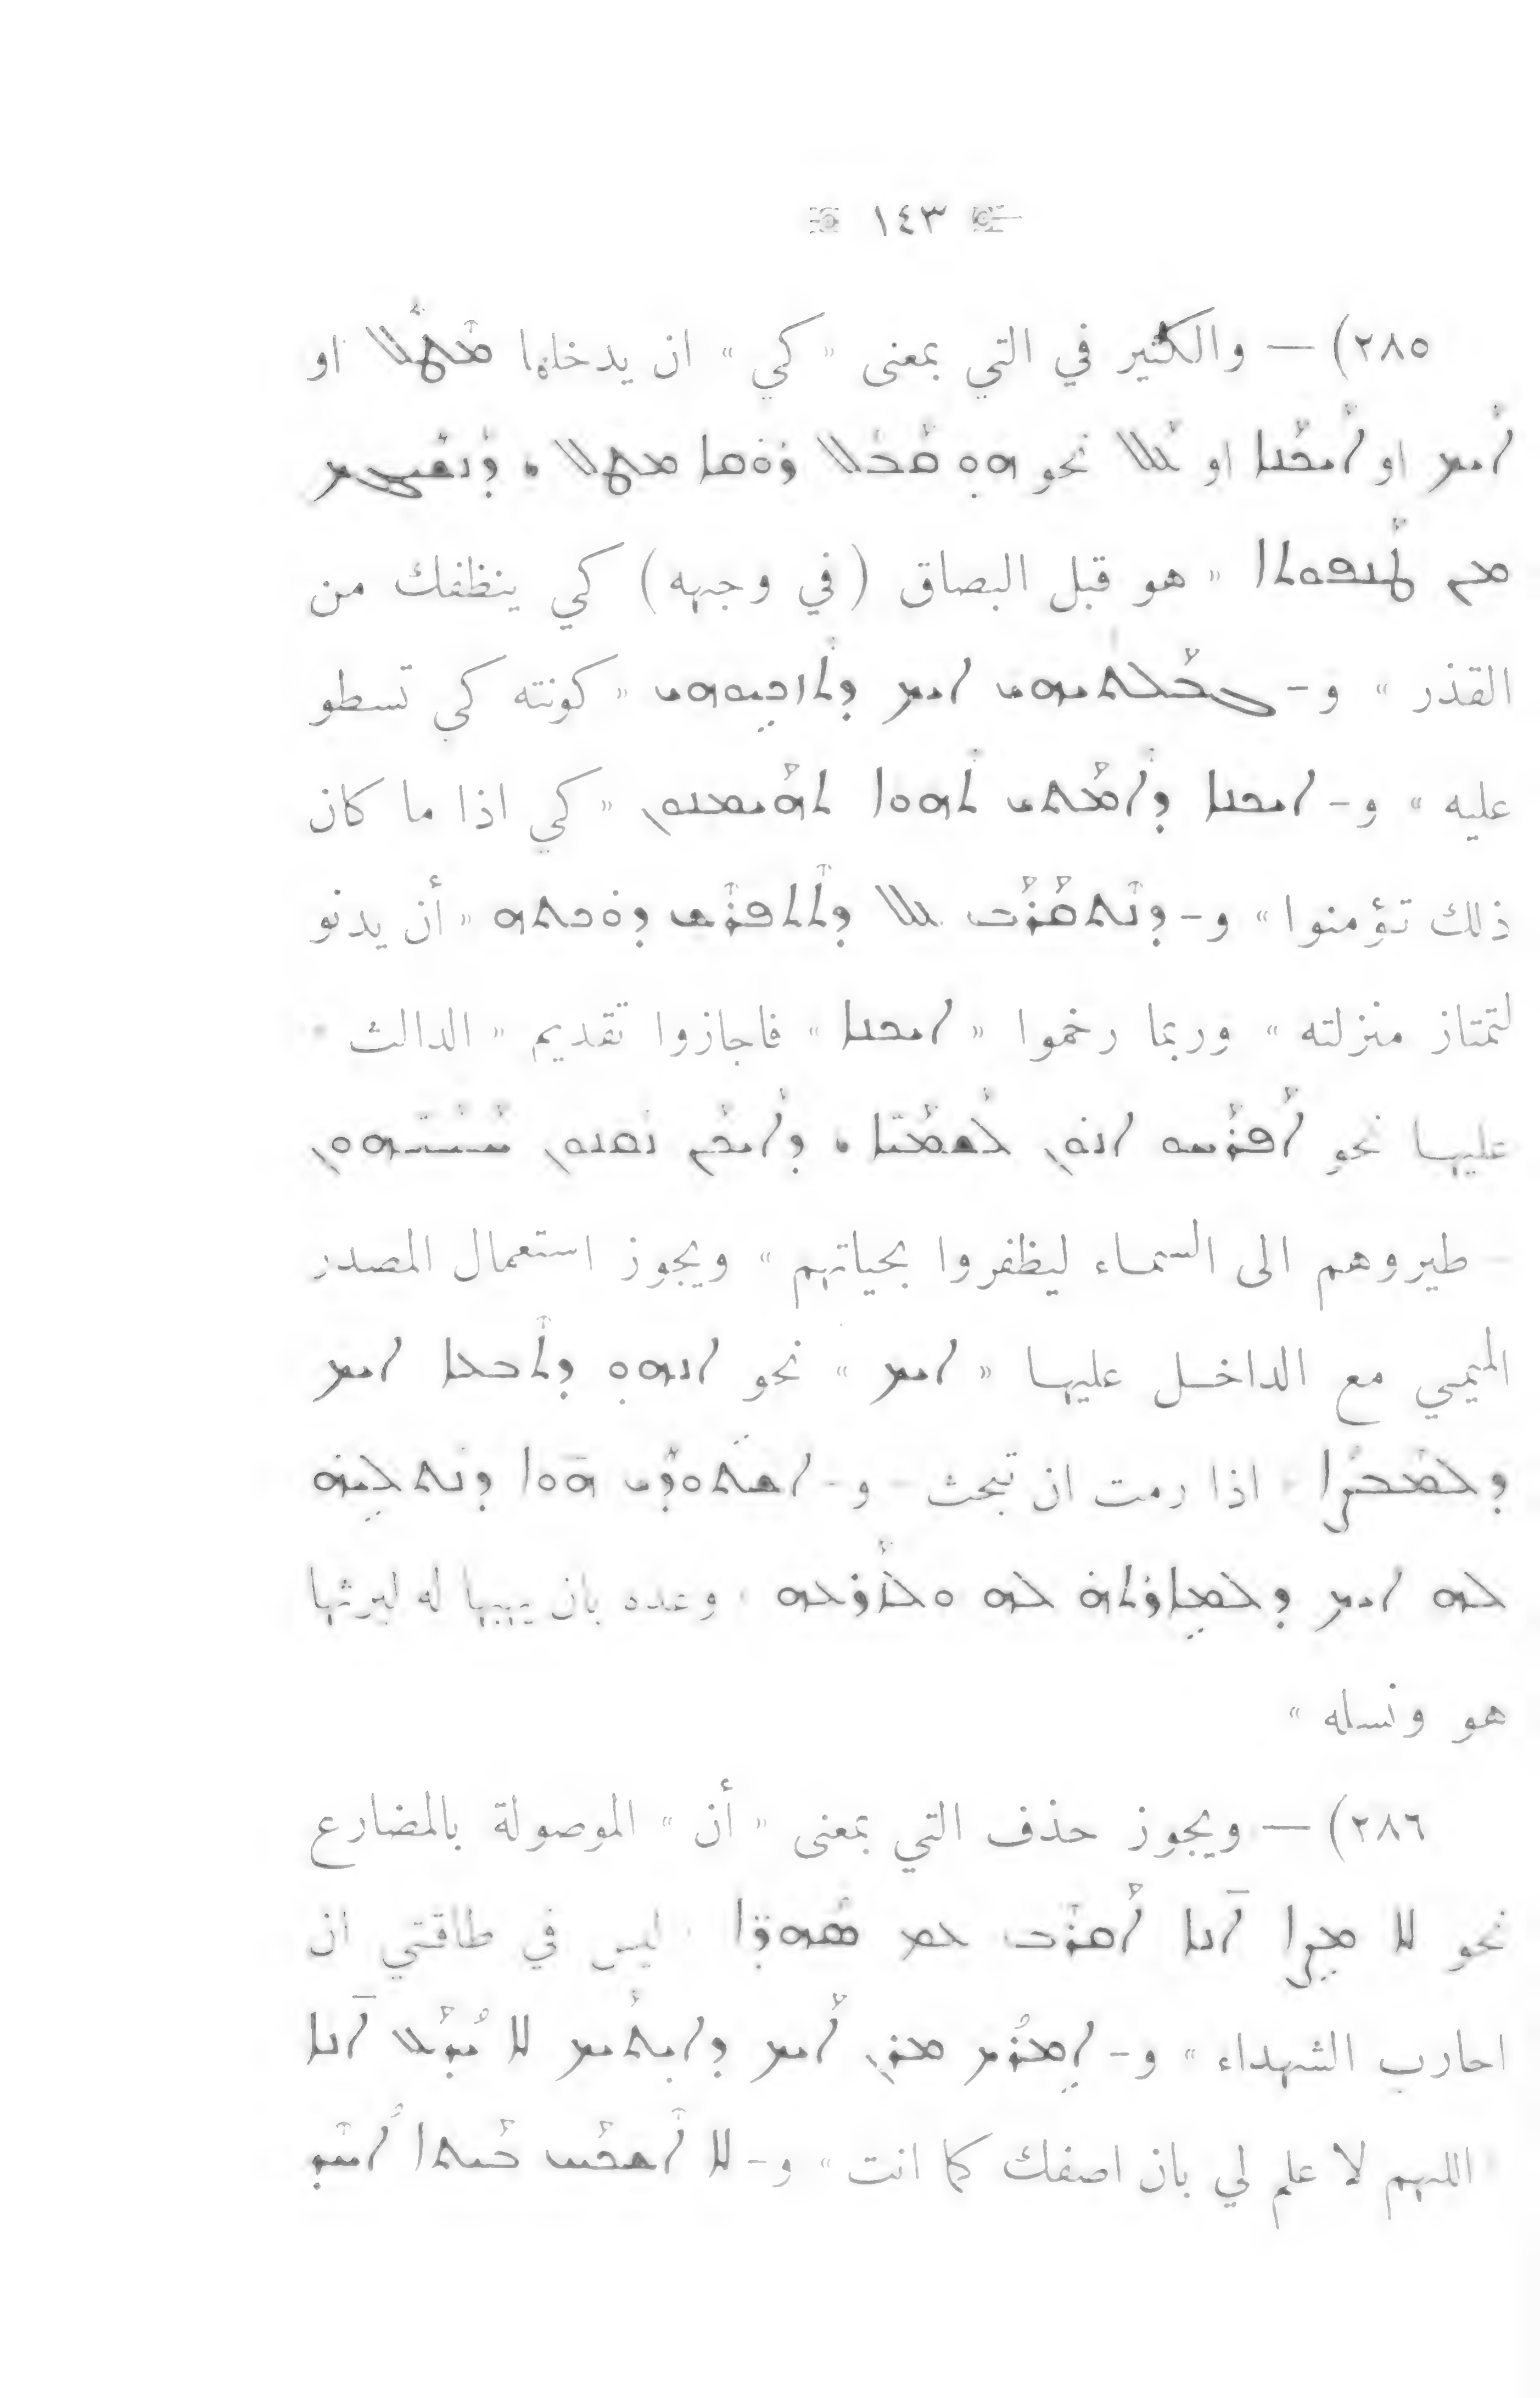 ١٤٣
٢٨٥) — والكثير في التي بمعنى « كي » ان يدخلها ܡܶܛܽܠ او
ܐܰܝܟ او ܐܰܝܟܰܢܐ او ܥܰܠ نحو ܗܘ ܩܰܒܶܠ ܪܘܩܐ ܡܛܠ . ܕܰܢܫܰܓܝܟ
ܡܢ ܛܰܢܦܘܬܐ « هو قبل البصاق (في وجهه) كي ينظفك من
القذر » و– ܓܒܰܠܬܝܗܝ ܐܝܟ ܕܬܶܐܒܕܝܘܗܝ « كونته كي تسطو
عليه » و– ܐܝܟܢܐ ܕܶܐܡܰܬܝ ܬܶܗܘܐ ܬܗܰܝܡܢܘܢ « كي اذا ما كان
ذلك تؤمنوا » و– ܕܢܶܬܩܰܪܰܒ ܥܠ ܕܬܶܬܦܪܶܫ ܕܘܟܬܗ « أن يدنو
لتمتاز منزلته » وربما رخموا « ܐܝܟܢܐ » فاجازوا تقديم « الدالث »
عليها نحو ܐܰܦܪܰܚܘ ܐܢܘܢ ܠܰܫܡܰܝܐ . ܕܰܐܝܟܰܢ ܢܩܢܘܢ ܚܰܝܰܝܗܘܢ
طيروهم الى السماء ليظفروا بحياتهم » ويجوز استعمال المصدر
الميمي مع الداخل عليها « ܐܝܟ » نحو ܐܢܗܘ ܕܬܶܒܥܐ ܐܝܟ
ܕܠܡܶܒܨܐ اذا رمت ان تبحث – و– ܐܫܬܘܕܝ ܗܘܐ ܕܢܬܠܝܗ
ܠܗ ܐܝܟ ܕܠܡܐܪܬܗ ܠܗ ܘܠܙܰܪܥܗ وعده بان يهبها له ليرثها
هو ونسله »
٢٨٦) — ويجوز حذف التي بمعنى « أن » الموصولة بالمضارع
نحو ܠܐ ܡܨܐ ܐܢܐ ܐܰܩܪܶܒ ܥܡ ܣܳܗܕܐ ليس في طاقتي ان
احارب الشهداء » و– ܐܡܪܟ ܡܪܢ ܐܰܝܟ ܕܐܝܬܰܝܟ ܠܐ ܝܳܕܰܥ ܐܢܐ
اللهم لا علم لي بان اصفك كما انت » و– ܠܐ ܐܶܫܟܰܚ ܒܰܝܬܐ ܐܳܚܶܕ